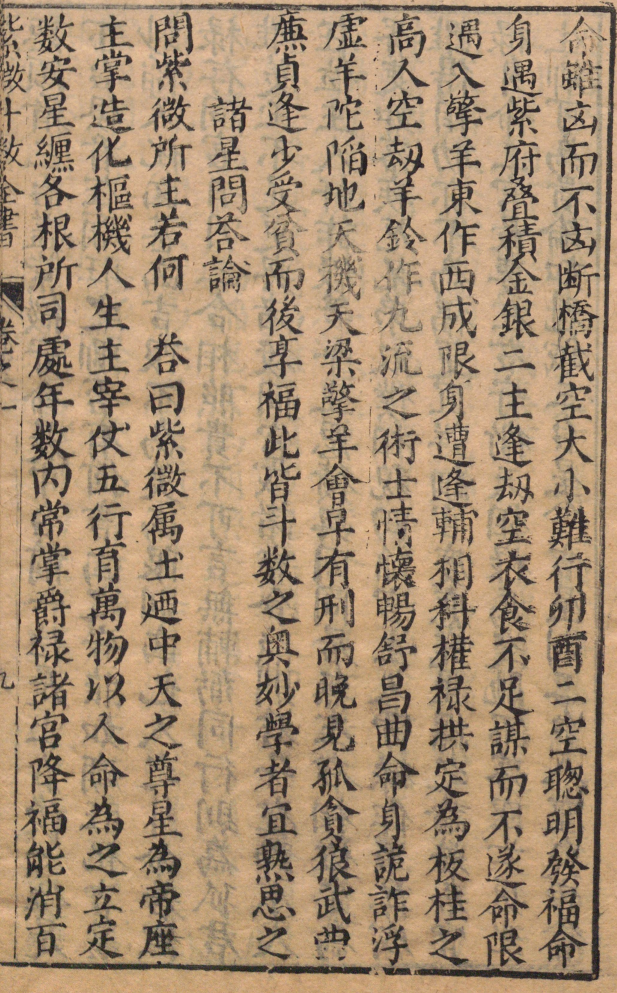 命雖凶而不凶断橋截空大小難行卯酉二空聰明發福命
身遇紫府疊積金銀二主逢刼空衣食不足謀而不遂命限
遇入擎羊東作西成限身遭逢輔相科權祿拱定為板桂之
高入空刼羊鈴作九流之術士情懷暢舒昌曲命身詭詐浮
虛羊陀陷地天機天梁擎羊會早有刑而晚見孤貪狼武曲
廉貞逢少受貧而後享福此皆斗数之奥妙學者宜熟思之
諸星問荅論
問紫微所主若何　荅曰紫微属土廼中天之尊星為帝座
主掌造化樞機人生主宰仗五行育萬物以人命為之立定
数安星纏各根所司處年数内常掌爵禄諸宮降福能消百
紫微斗数全書　卷之一　九